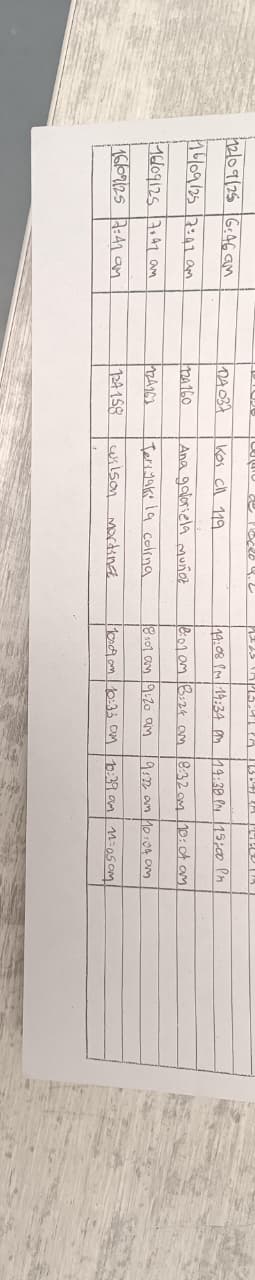 12/09/25 6:46 am 12A087 Kos cll 119 14:08 Pm 14:34 Pm 14:38 Pm 15:00 Pm
16/09/25 7:41 am 12A160 Ana gabriela muñoz 8:01 am 8:24 am 8:32 am 10:01 am
16/09/25 7:41 am Teriyaki la colina 8:01 am 9:20 am 9:22 am 10:04 am
16/09/25 7:41 am 12A158 wilson 10:09 am 10:33 am 10:39 am 11:05 am